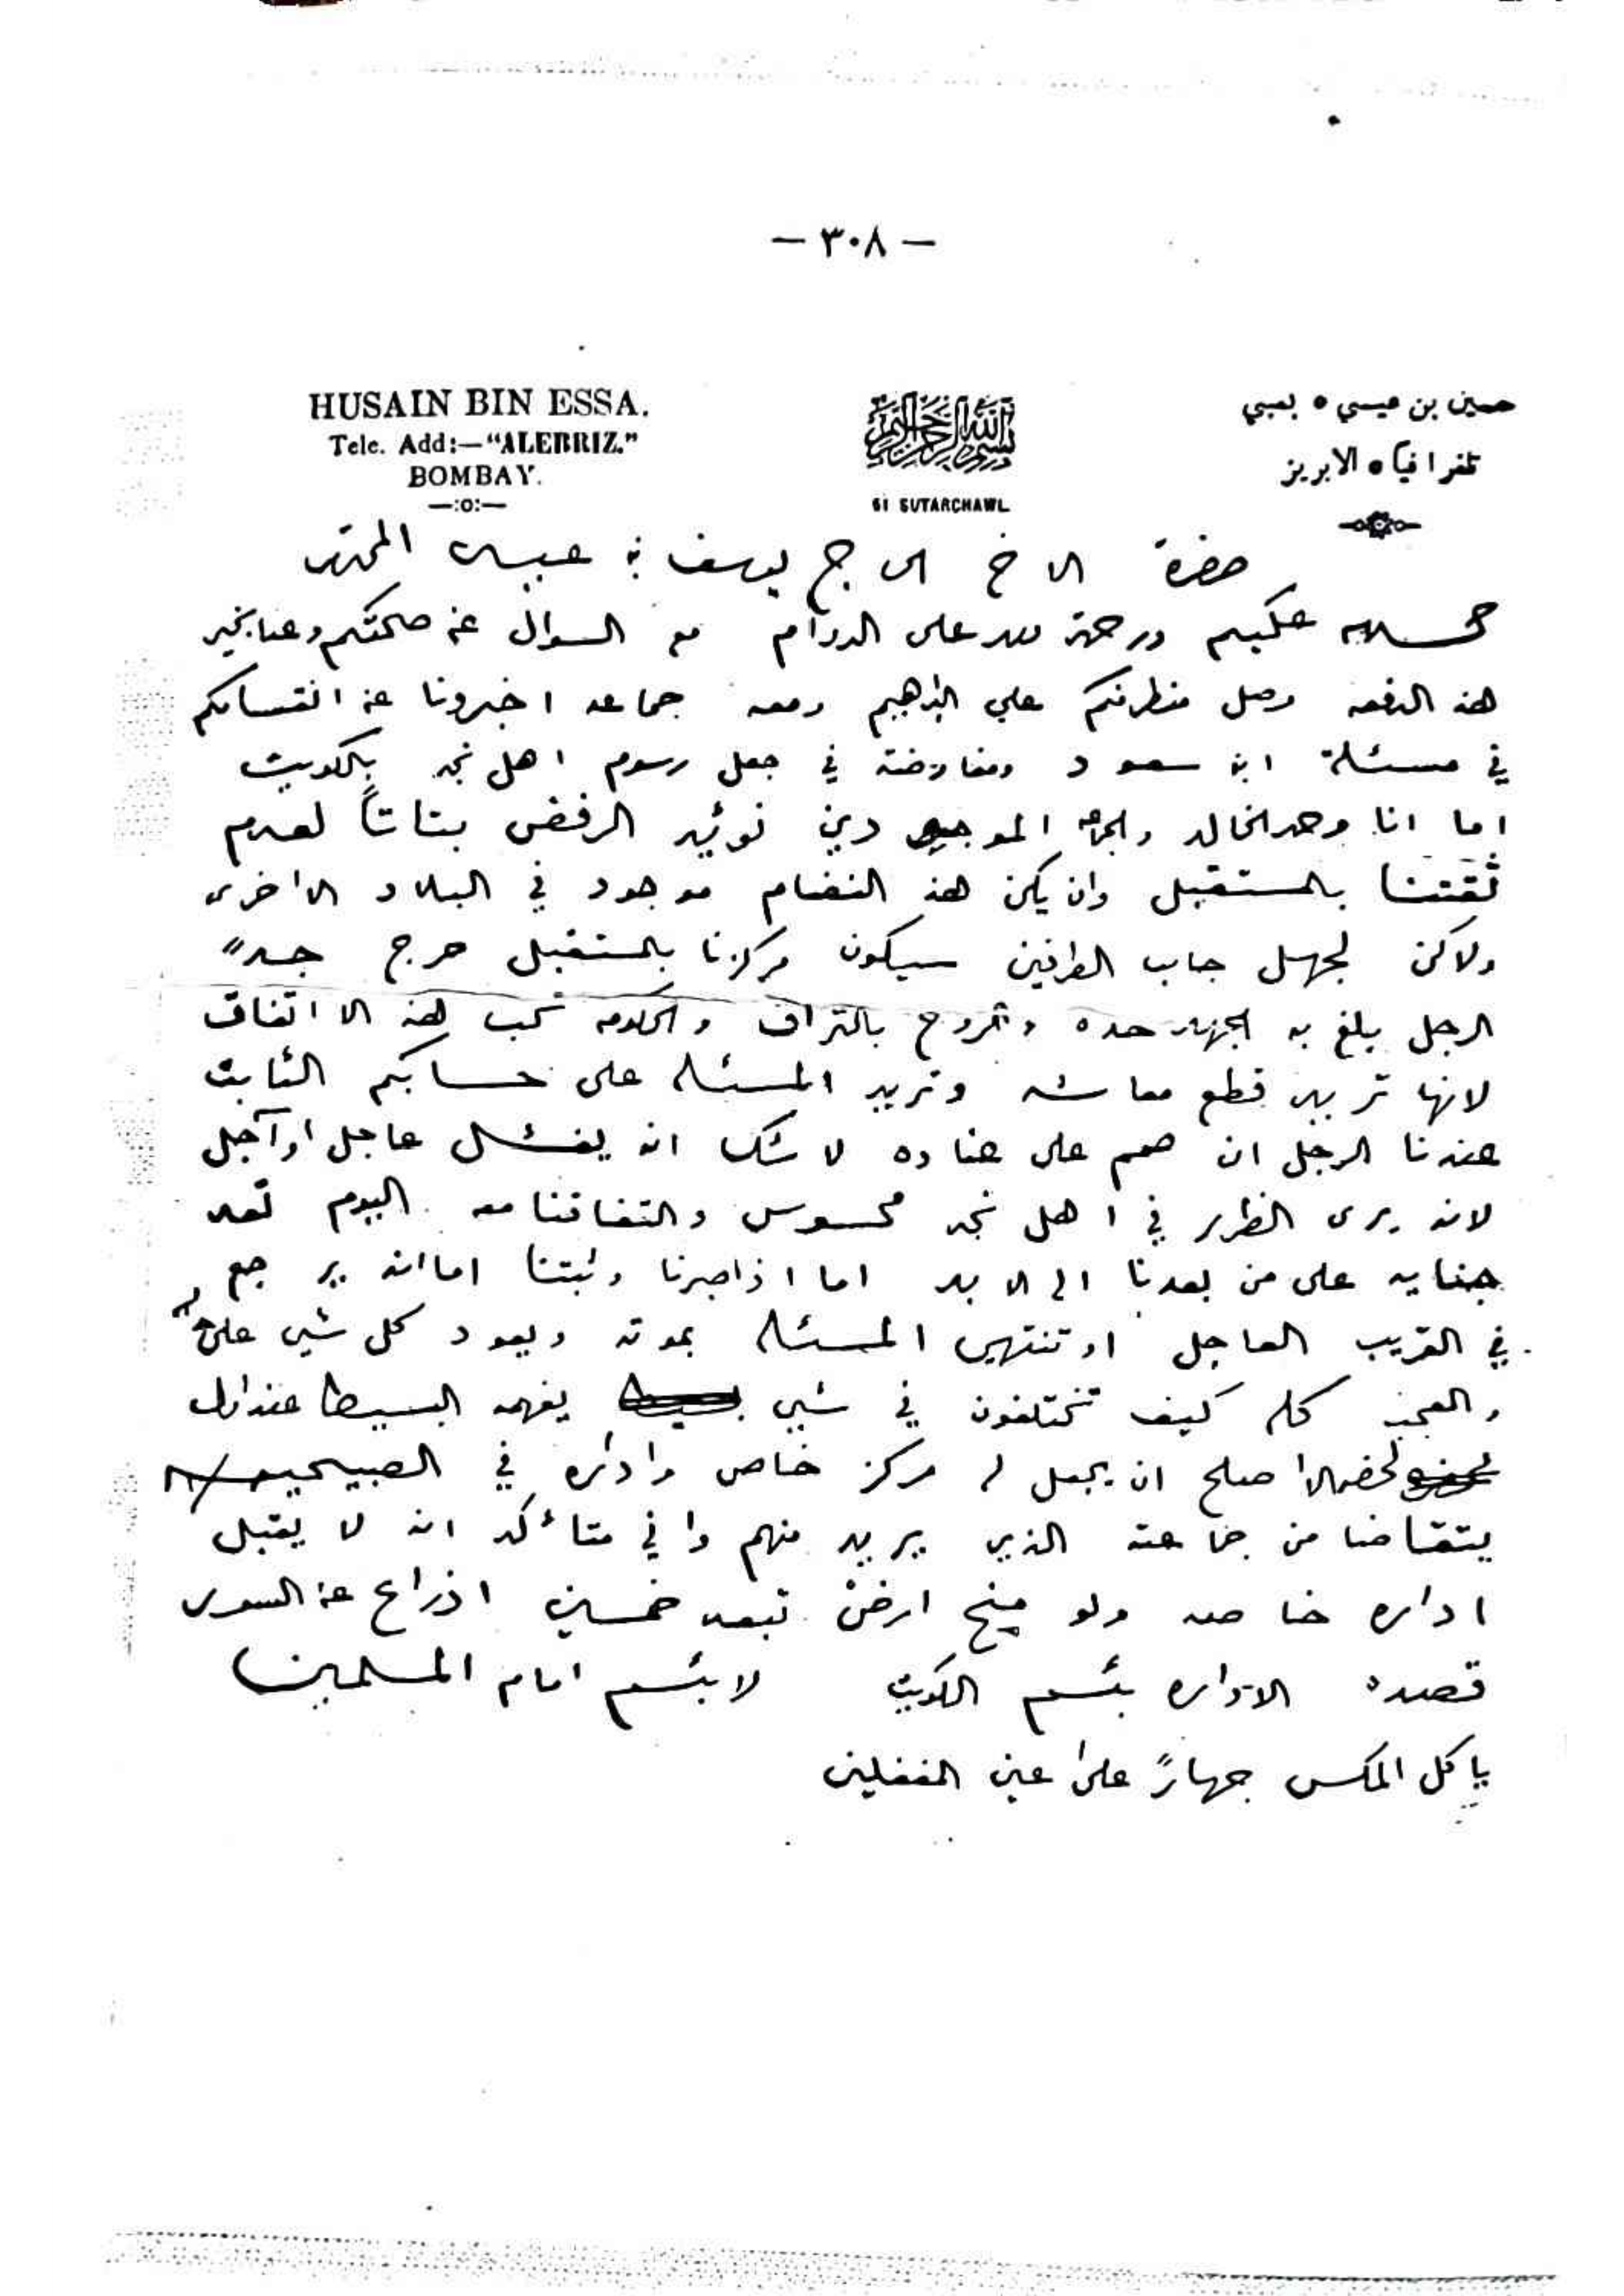 — ٣٠٨ —
HUSAIN BIN ESSA.
Tele. Add:—"ALEBRIZ."
BOMBAY.
—:o:—
بسم الله الرحمن الرحيم
61 SUTARCHAWL
حسين بن عيسى ٥ بمبي
تلغرافيا ٥ الابريز
حضرة الاخ الحاج يوسف بن عيسى المحترم
عليكم ورحمة الله على الدوام مع السوال عن صحتكم وعنا بخير
هذه الدفعه وصل منطرفكم علي البراهيم ومعه جماعه اخبرونا عن انقسامكم
في مسئلة ابن سعود ومفاوضته في جعل رسوم اهل نجد بالكويت
اما انا وحمد الخالد نوئيد الرفض بتاتاً لعدم
ثقتنا بالمستقبل وان يكن هذه النضام موجود في البلاد الاخرى
ولاكن لجهل جانب الطرفين سيكون مركزنا بالمستقبل حرج جداً
الرجل بلغ به الجهد حده والحكومه تحب هذه الا اتفاق
لانها تريد قطع معاشه وتريد المسئله على حسابكم الثابت
عندنا الرجل ان صمم على عناده لا شك انه يفشل عاجل او آجل
لانه يرى الظرر في اهل نجد محسوس والتفاقنا معه اليوم تعد
جنايه على من بعدنا الى الابد اما اذا صبرنا وثبتنا اما انه يرجع
في القريب العاجل او تنتهي المسئله بموته ويعود كل شي على
والعجب كله كيف تختلفون في شي يفهمه البسيط عند اول
لحضه الاصلح ان يجعل له مركز خاص وادائره في الصبيحيه
يتقاضا من جماعته الذي يريد منهم واني متأكد انه لا يقبل
اداره خاصه ولو منح ارض تبعد خمسين اذراع عن السور
قصده الاداره بئسم الكويت لا بئسم امام المسلمين
ياكل المكس جهاراً على عين الغفلين